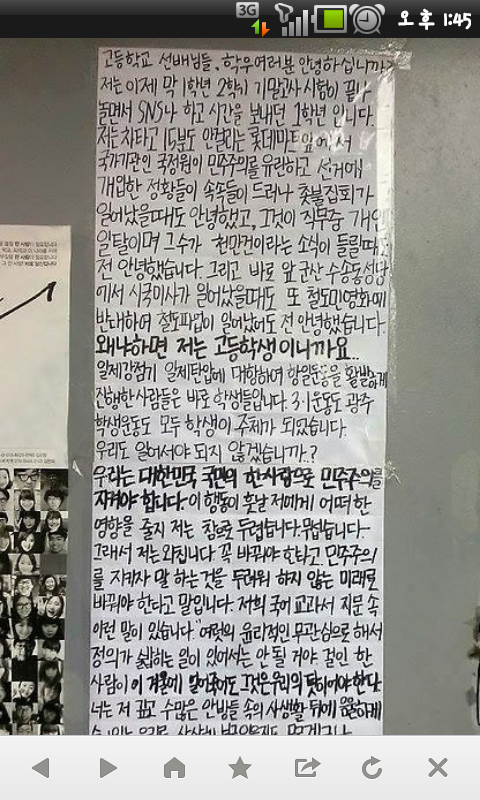 3G
오후 1:45
고등학교 선배님들, 학우여러분 안녕하십니까?
저는 이제 막 1학년 2학기 기말고사 시험이 끝나
놀면서 SNS나 하고 시간을 보내던 1학년 입니다.
저는 차타고 15분도 안걸리는 롯데마트 앞에서
국가기관인 국정원이 민주주의를 유린하고 선거에
개입한 정황들이 속속들이 드러나 촛불집회가
일어났을때도 안녕했고, 그것이 직무중 개인
일탈이며 그수가 천만건이라는 소식이 들릴때도
전 안녕했습니다. 그리고 바로 앞 군산 수송동성당
에서 시국미사가 일어났을때도 또 철도민영화에
반대하여 철도파업이 일어났어도 전 안녕했습니다.
왜냐하면 저는 고등학생이니까요..
일제강점기 일제탄압에 대항하여 항일운동을 활발하게
진행한 사람들은 바로 학생들입니다. 3·1운동도 광주
학생운동도 모두 학생이 주체가 되었습니다.
우리도 일어서야 되지 않겠습니까.?
우리는 대한민국 국민의 한사람으로 민주주의를
지켜야 합니다. 이 행동이 훗날 저에게 어떠한
영향을 줄지 저는 참으로 두렵습니다. 무섭습니다.
그래서 저는 외칩니다 꼭 바뀌야 한다고. 민주주의
를 지키자 말 하는 것을 두려워 하지 않는 미래로
바뀌야 한다고 말입니다. 저희 국어 교과서 지문 속
이런 말이 있습니다. "여럿의 윤리적인 무관심으로 해서
정의가 밟히는 일이 있어서는 안 될 거야. 걸인 한
사람이 이 겨울에 얼어죽어도 그것은 우리의 탓이어야 한다.
너는 저 깊고 수많은 안방들 속의 사생활 뒤에 음울하게